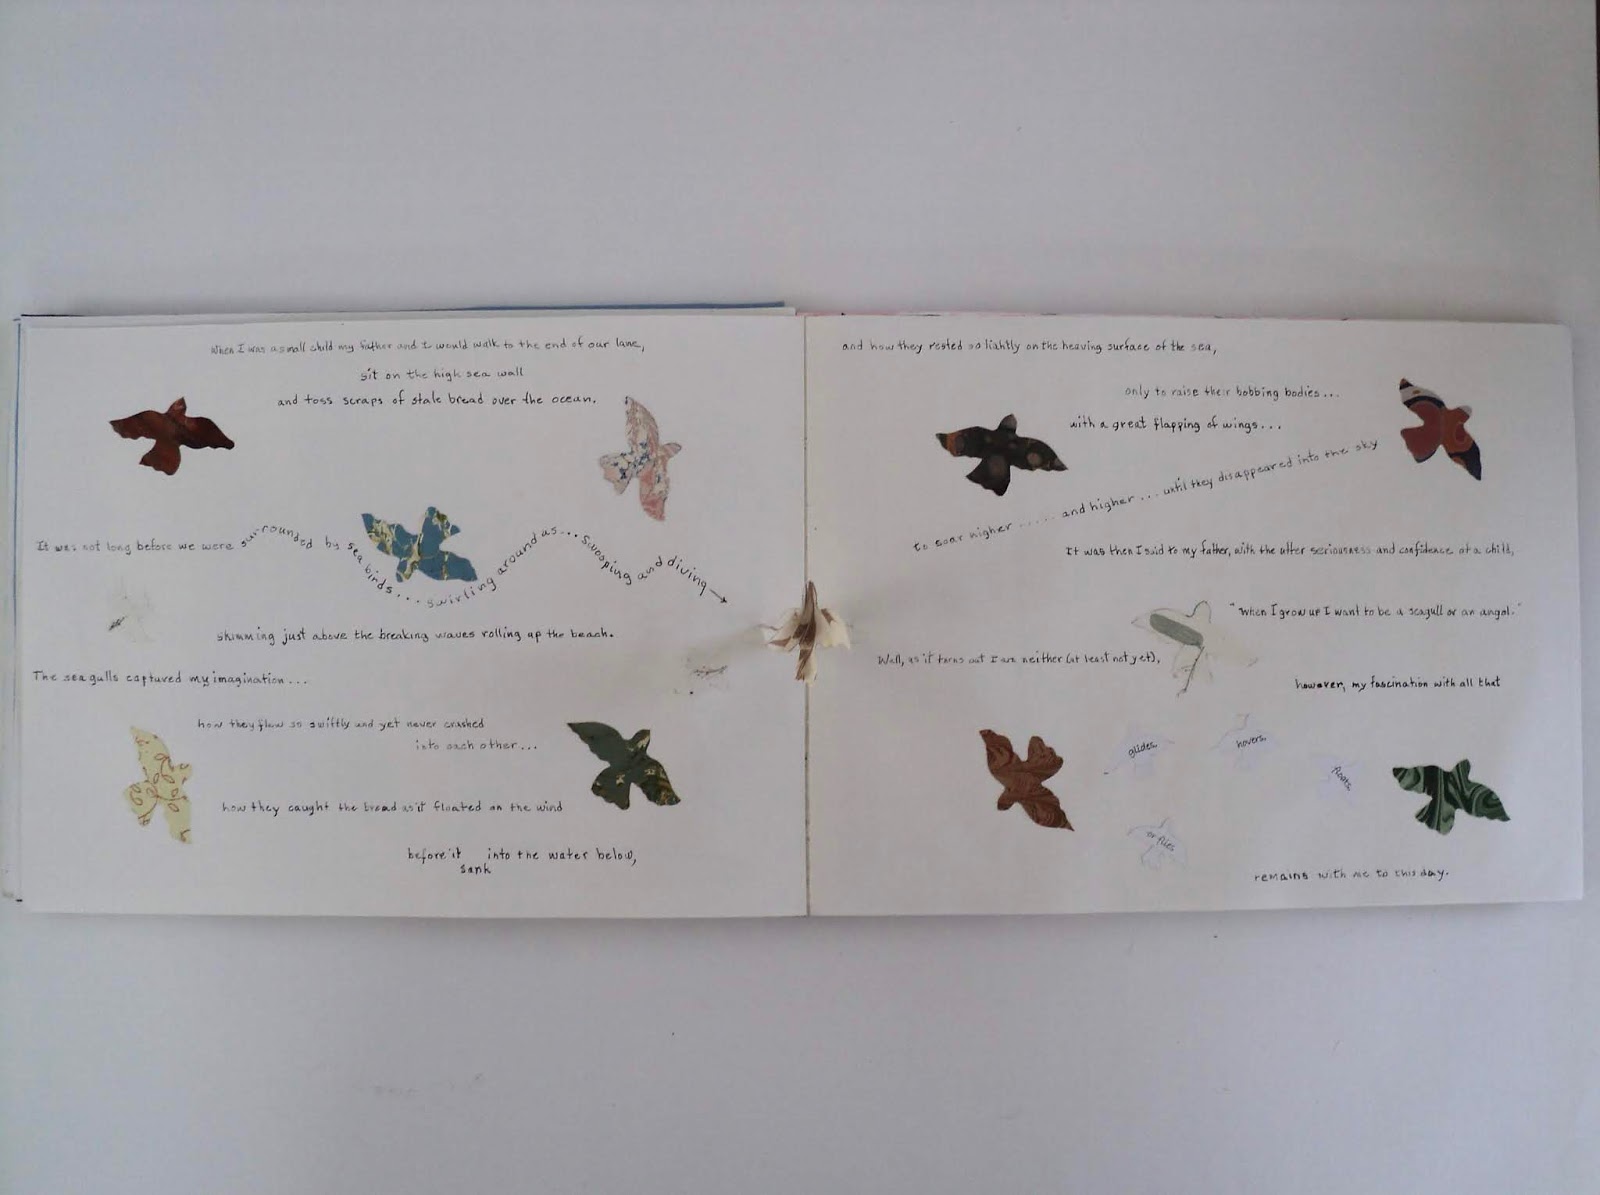 When I was a small child my father and I would walk to the end of our lane,
sit on the high sea wall
and toss scraps of stale bread over the ocean.
It was not long before we were surrounded by sea birds... swirling around as... swooping and diving
skimming just above the breaking waves rolling up the beach.
The seagulls captured my imagination...
how they flew so swiftly and yet never crashed
into each other...
how they caught the bread as it floated on the wind
before it sank into the water below,
and how they rested so lightly on the heaving surface of the sea,
only to raise their bobbing bodies...
with a great flapping of wings...
to soar higher ..... and higher ... until they disappeared into the sky
It was then I said to my father, with the utter seriousness and confidence of a child,
"When I grow up I want to be a seagull or an angel."
Well, as it turns out I am neither (at least not yet),
however, my fascination with all that
glides,
hovers,
floats,
or flies
remains with me to this day.